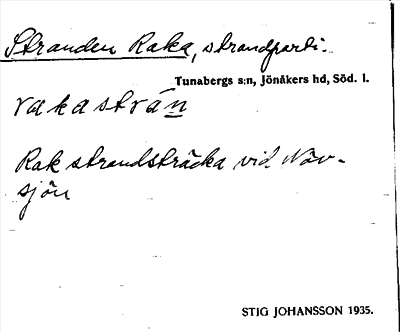 Stranden Raka, strandparti.
Tunabergs s:n, Jönåkers hd, Söd. l.
rakastrán
Rak strandsträcka vid Näv-
sjön
STIG JOHANSSON 1935.